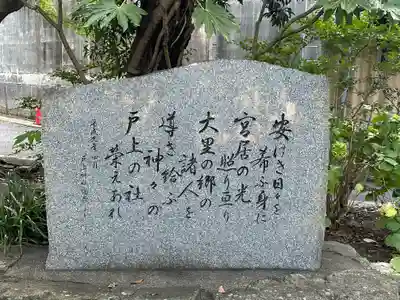 安け き日々を
希ふ身に
宮居の光
照り亘り
大里の郷の
諸人を
導き給ふ
神々の
戸上の社
栄えあれ